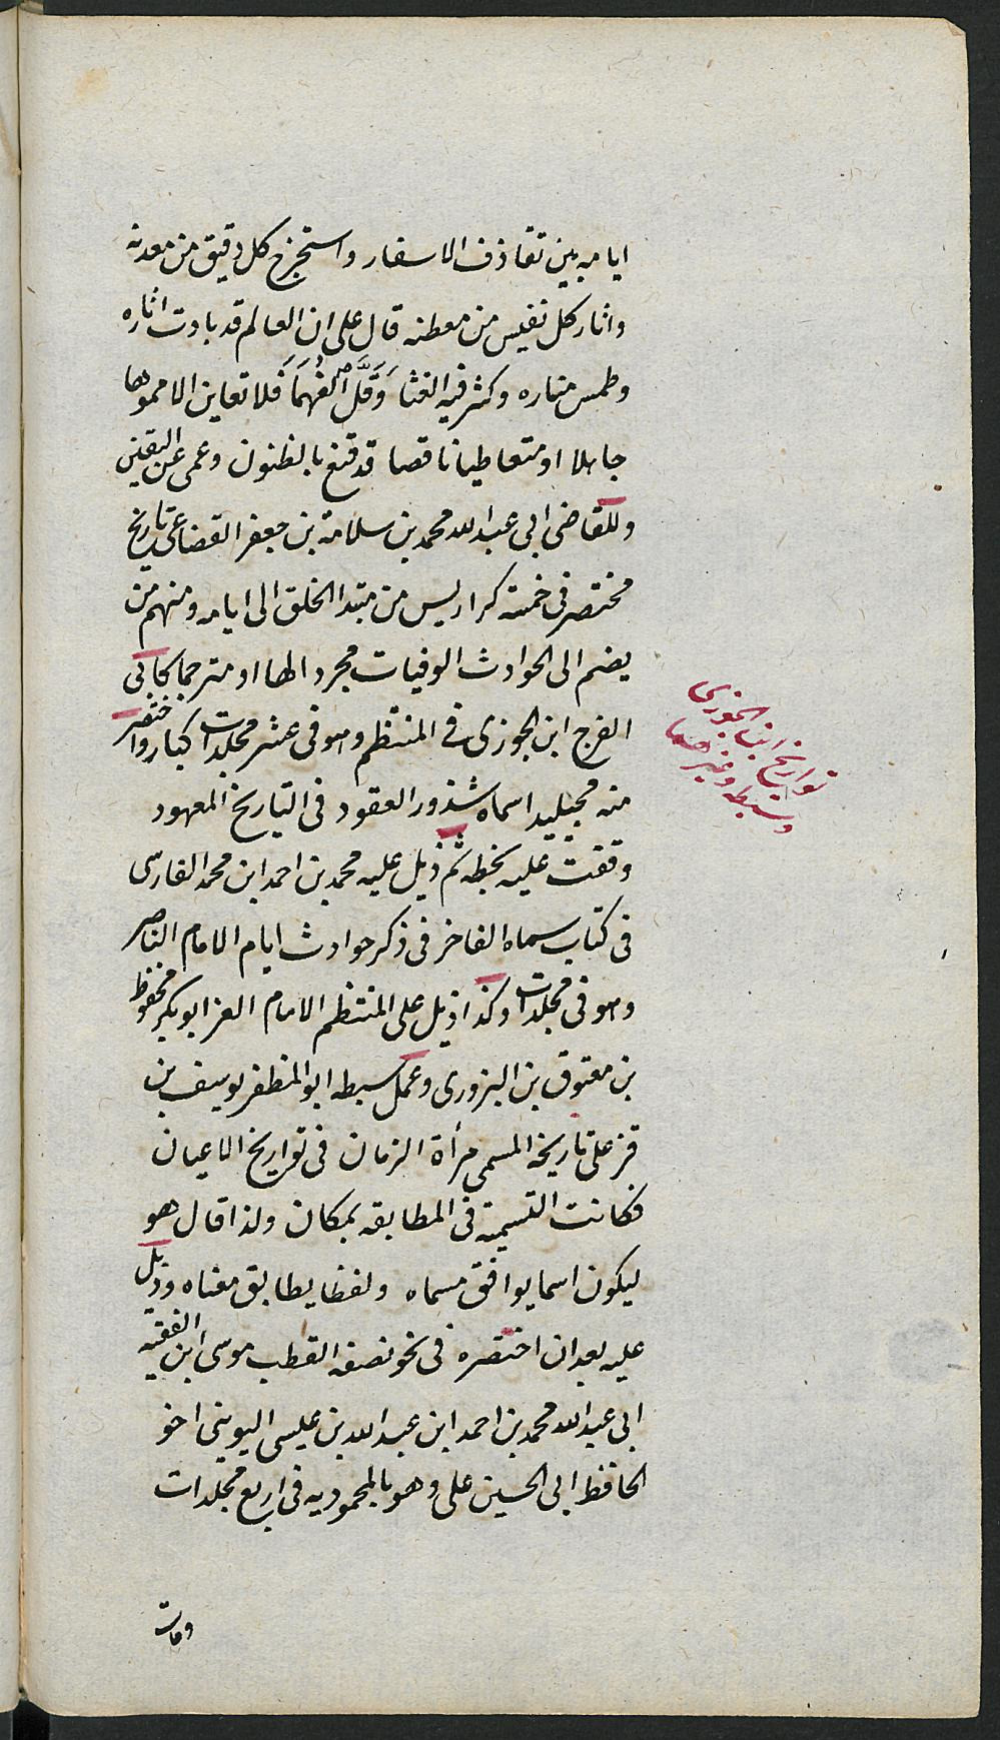 ايامه بين تقاذف الاسفار واستخرج كل دقيق من معدنه
واثار كل نفيس من معطنه قال على ان العالم قد بادت اثاره
وطمس مناره وكثر فيه الغثا وَقَلَّ الفُهَمَا فلا تعاين الا مموها
جاهلا او متعاطيا ناقصا قد قنع بالظنون وعمى عن اليقين
وللقاضى ابى عبد الله محمد بن سلامة بن جعفر القضاعى تاريخ
مختصر فى خمسة كراريس من مبتدا الخلق الى ايامه ومنهم من
يضم الى الحوادث الوفيات مجردا لها او مترجما كابى
الفرج ابن الجوزى فى المنتظم وهو فى عشر مجلدات كبار واختصر
منه مجيليد اسماه شذور العقود فى التاريخ المعهود
وقفت عليه بخطه ثم ذيل عليه محمد بن احمد ابن محمد الفارسى
فى كتاب سماه الفاخر فى ذكر حوادث ايام الامام الناصر
وهو فى مجلدات وكذا ذيل على المنتظم الامام العز ابو بكر محفوظ
بن معتوق بن البزورى وعمل سبطه ابو المظفر يوسف بن
قزعلى تاريخه المسمى مرأة الزمان فى تواريخ الاعيان
فكانت التسمية فى المطابقه بمكان ولذا قال هو
ليكون اسما يوافق مسماه ولفظا يطابق معناه وذيل
عليه بعد ان اختصره فى نحو نصفه القطب موسى ابن الفقيه
ابى عبد الله محمد بن احمد ابن عبد الله بن عيسى اليوينى اخو
الحافظ ابى الحسين على وهو بالمحموديه فى اربع مجلدات
ومات
تواريخ ابن الجوزى
وسبطه وغيرهما